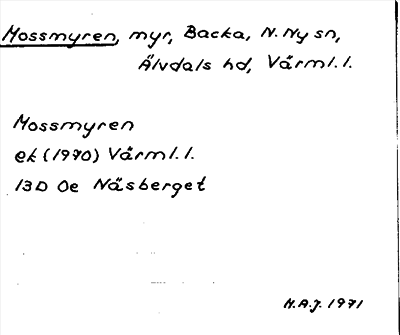 Mossmyren, myr, Backa, N. Ny sn,
Älvdals hd, Värml. l.
Mossmyren
ek (1970) Värml. l.
13D 0e Näsberget
H.A.J. 1971